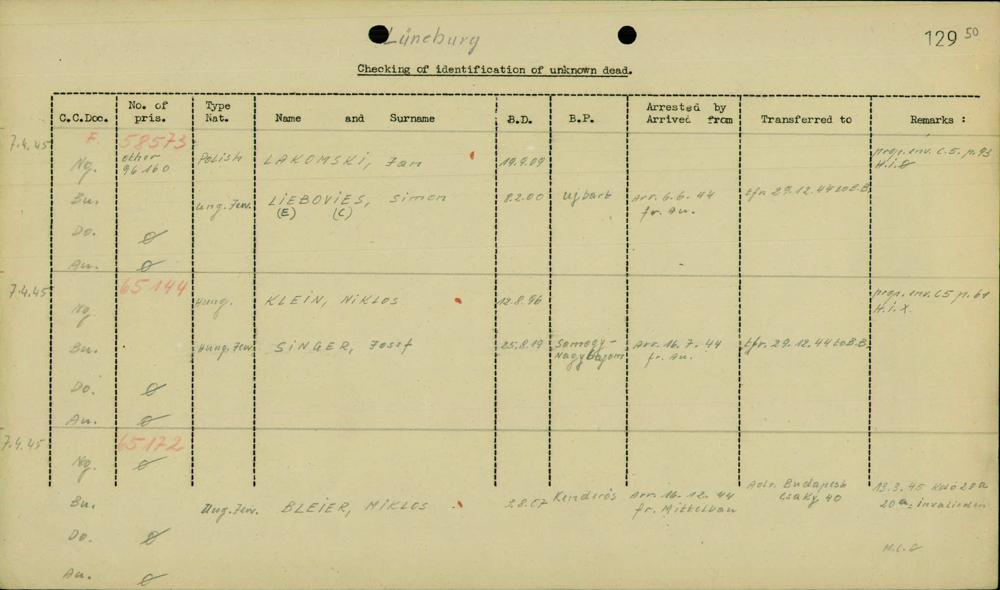 Lüneburg
129 50
Checking of identification of unknown dead.
C.C.Doc. No. of pris. Type Nat. Name and Surname B.D. B.P. Arrested by Arrived from Transferred to Remarks :
7.4.45 F. 58573
Ng. other 96160 Polish LAKOMSKI, Jan 19.9.09 prop. env. C.5. p. 93
H.i.
Bu. Ung. Jew. LIEBOVIES, Simon 8.2.00 Ujbarb Arr. 6.6.44 tfr. 29.12.44 to B.B.
(E) (C) fr. Au.
Do. ø
Au. ø
7.4.45 65144
Ng. Hung. KLEIN, NIKLOS 12.8.96 prop. env. C5 p. 61
H.i.X.
Bu. Hung. Jew SINGER, Josef 25.8.19 Somogy- Arr. 16.7.44 tfr. 29.12.44 to B.B.
Nagybajom fr. Au.
Do. ø
Au. ø
7.4.45 65172
Ng. ø
Bu. Ung. Jew. BLEIER, MIKLOS 2.8.07 Kenderös Arr. 16.12.44 Adr. Budapest 13.3.45 Kdo 20a
fr. Mittelbau Csáky 40 20a = invalieden
Do. ø
Au. ø